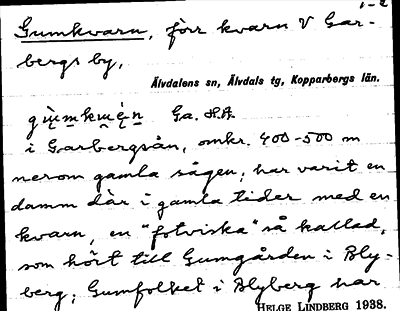 1-2
Gumkvarn, förr kvarn V Gar-
bergs by,
Älvdalens sn, Älvdals tg, Kopparbergs län.
Ga. H.A.
i Garbergsån, omkr. 400-500 m
nerom gamla sågen, har varit en
damm där i gamla tider med en
kvarn, en "fotviska" så kallad,
som hört till Gumgården i Bly-
berg; Gumfolket i Blyberg har
HELGE LINDBERG 1938.